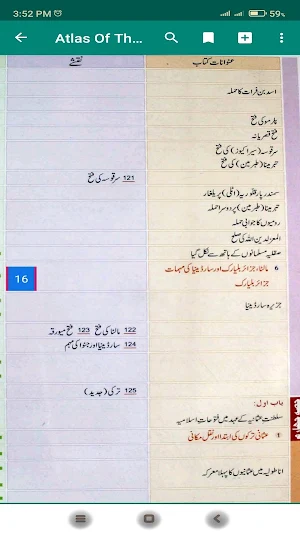 3:52 PM
59%
Atlas Of Th...
عنوانات کتاب
نقشے
اسد بن فرات کا حملہ
پلرمو کی فتح
فتح قصریانہ
سرقوسہ (سیراکیوز) کی فتح
تبرمینا (طبرمین) کی فتح
121 سرقوسہ کی فتح
سمندر پار قلوریہ (اٹلی) پر یلغار
تبرمینا (طبرمین) پر دوسرا حملہ
رومیوں کا جوابی حملہ
المعزلدین اللہ کی صلح
صقلیہ مسلمانوں کے ہاتھ سے نکل گیا
6 مالٹا، جزائر بلیارک اور سارڈینیا کی مہمات
16
جزائر بلیارک
جزیرہ سارڈینیا
122 مالٹا کی فتح 123 فتح میورقہ
124 سارڈینیا اور جنوا کی مہم
125 ترکی (جدید)
باب اول:
سلطنت عثمانیہ کے عہد میں فتوحات اسلامیہ
1 عثمانی ترکوں کی ابتدا اور نقل مکانی
اناطولیہ میں عثمانیوں کا پہلا معرکہ